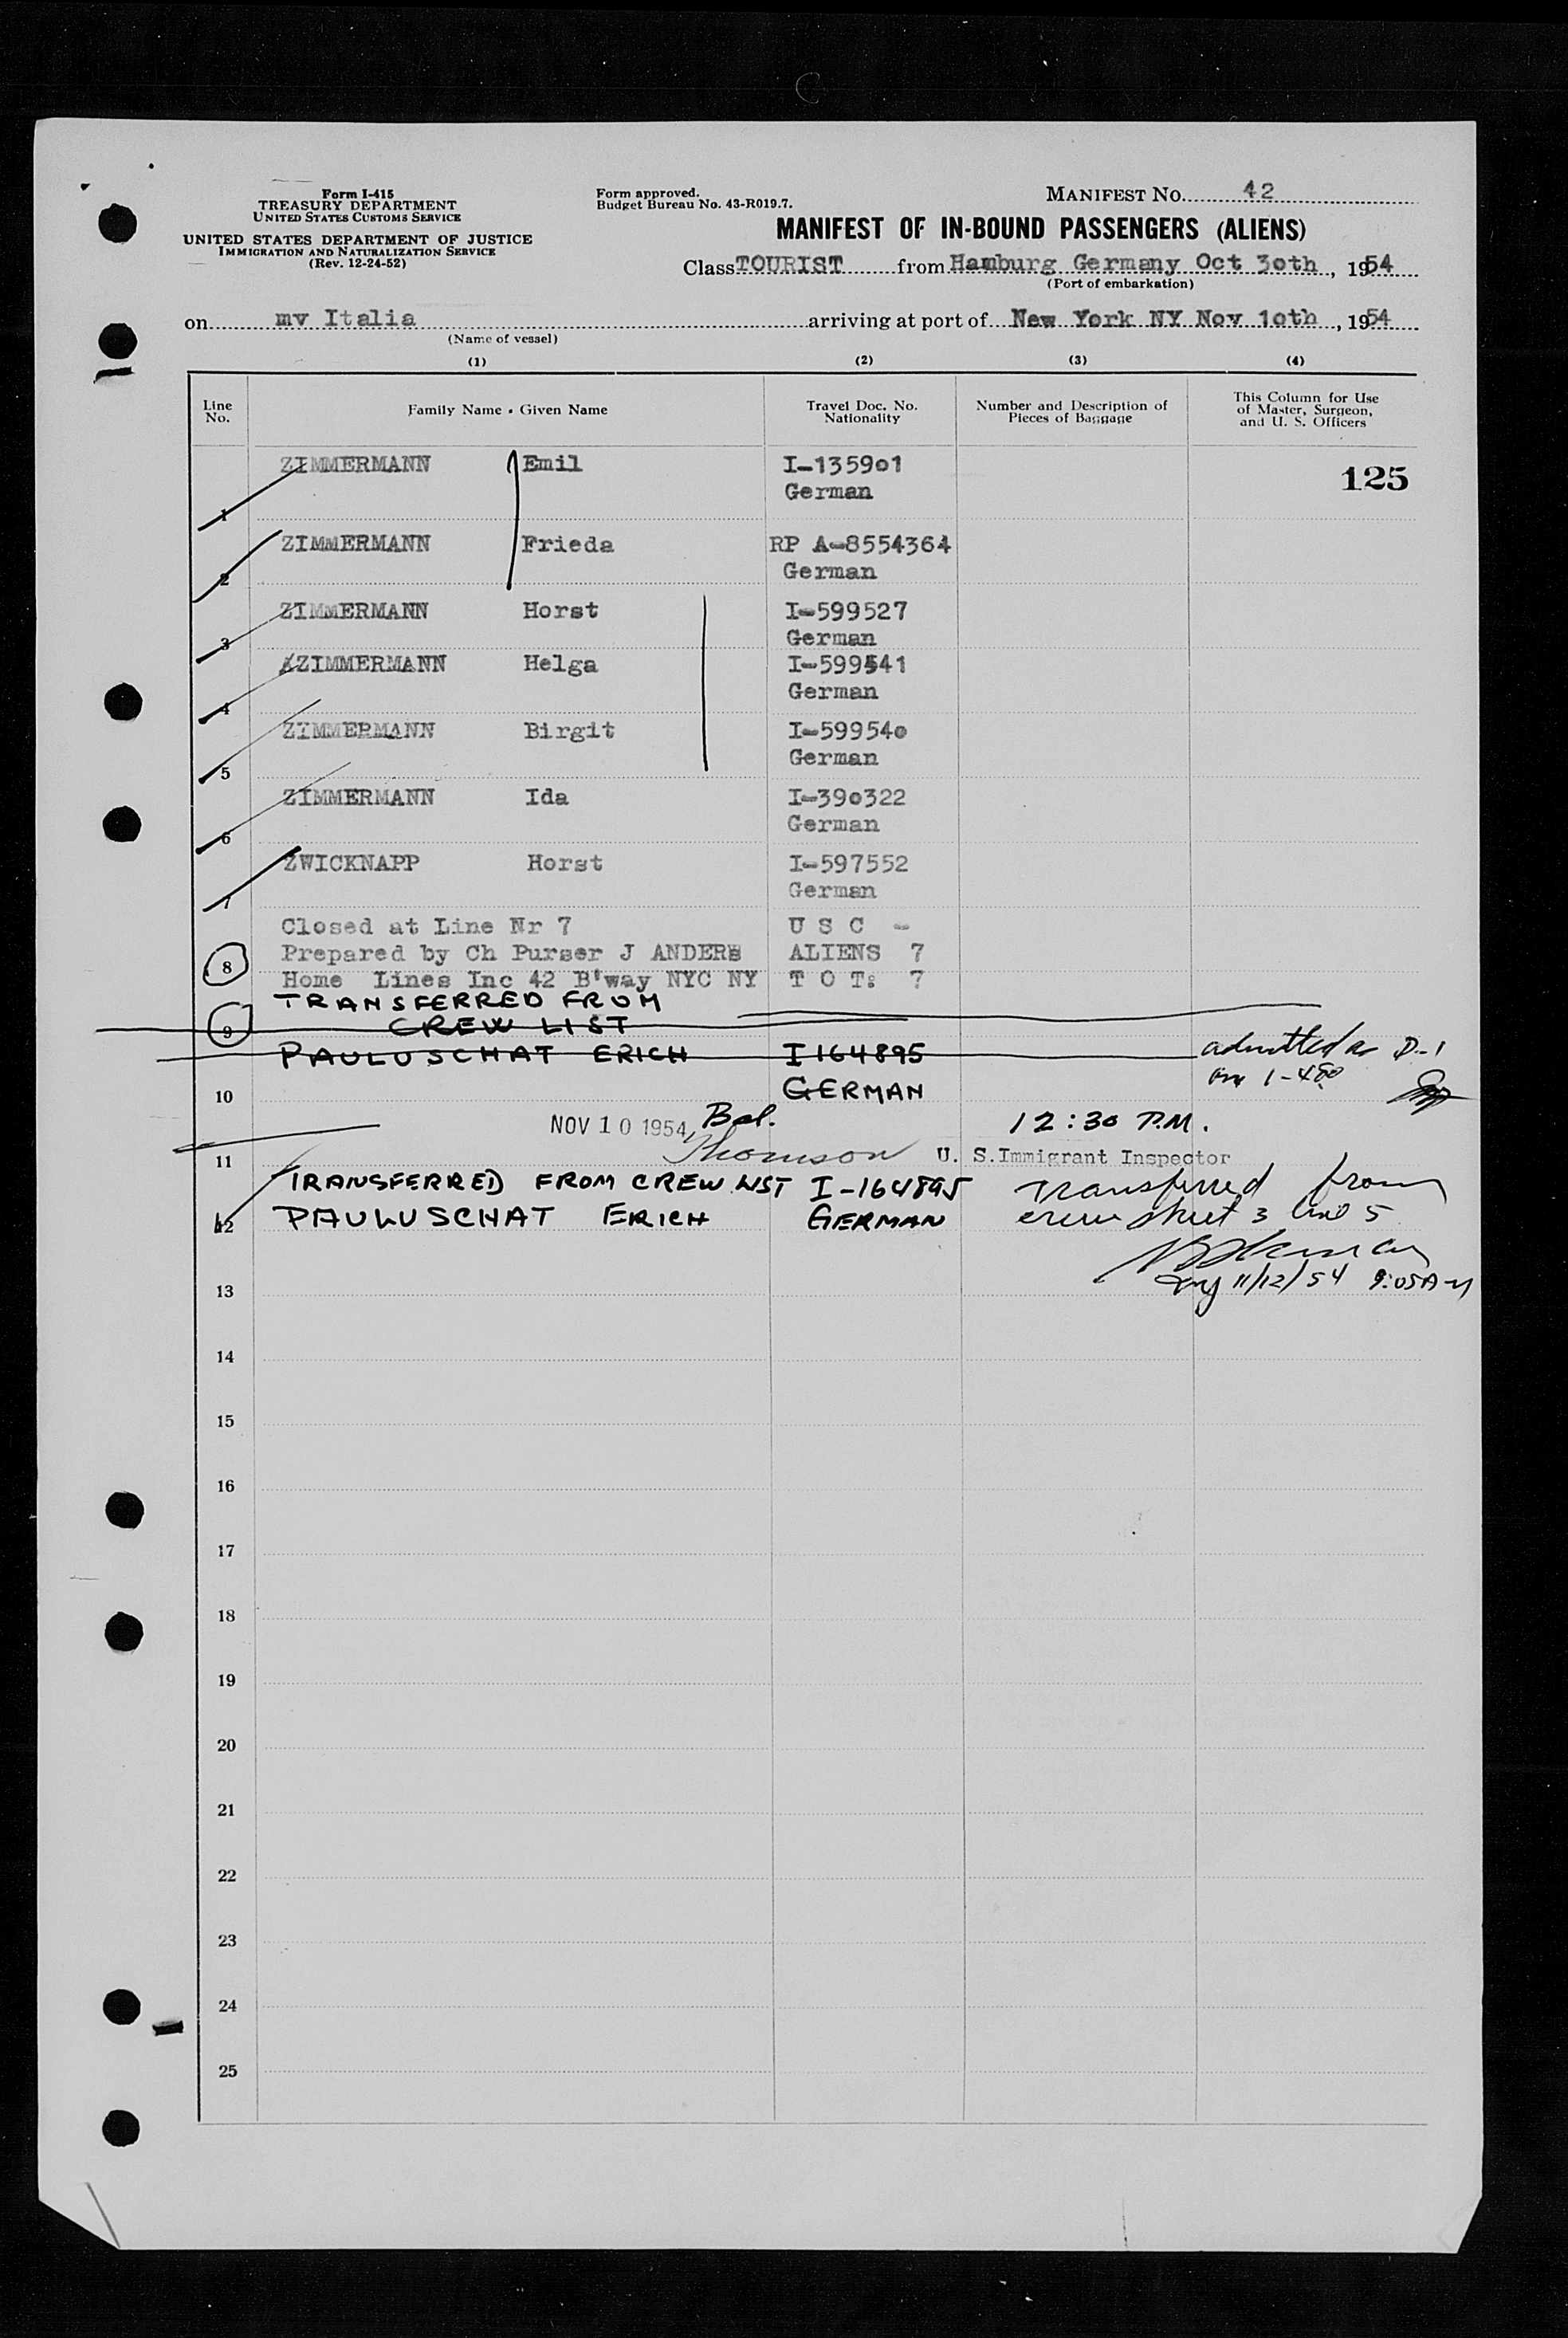 Form I-415
TREASURY DEPARTMENT
UNITED STATES CUSTOMS SERVICE
UNITED STATES DEPARTMENT OF JUSTICE
IMMIGRATION AND NATURALIZATION SERVICE
(Rev. 12-24-52)
Form approved.
Budget Bureau No. 43-R019.7.
MANIFEST NO. 42
MANIFEST OF IN-BOUND PASSENGERS (ALIENS)
Class TOURIST from Hamburg Germany Oct 30th, 1954
(Port of embarkation)
on mv Italia arriving at port of New York NY Nov 10th, 1954
(Name of vessel)
(1) (2) (3) (4)
Line No. Family Name • Given Name Travel Doc. No. Nationality Number and Description of Pieces of Baggage This Column for Use of Master, Surgeon, and U. S. Officers
125
ZIMMERMANN Emil I-135901
1 German
ZIMMERMANN Frieda RP A-8554364
2 German
ZIMMERMANN Horst I-599527
3 German
ZIMMERMANN Helga I-599541
4 German
ZIMMERMANN Birgit I-599540
5 German
ZIMMERMANN Ida I-390322
6 German
ZWICKNAPP Horst I-597552
7 German
Closed at Line Nr 7 U S C -
8 Prepared by Ch Purser J ANDERS ALIENS 7
Home Lines Inc 42 B'way NYC NY T O T: 7
TRANSFERRED FROM
9 CREW LIST
PAULUSCHAT ERICH I 164895 admitted as D-1
10 GERMAN on I-480
NOV 10 1954 Bel. 12:30 P.M.
11 Thomson U. S. Immigrant Inspector
TRANSFERRED FROM CREW LIST I-164895 Transferred from
12 PAULUSCHAT ERICH GERMAN crew sheet 3 line 5
11/12/54 9:05 AM
13
14
15
16
17
18
19
20
21
22
23
24
25